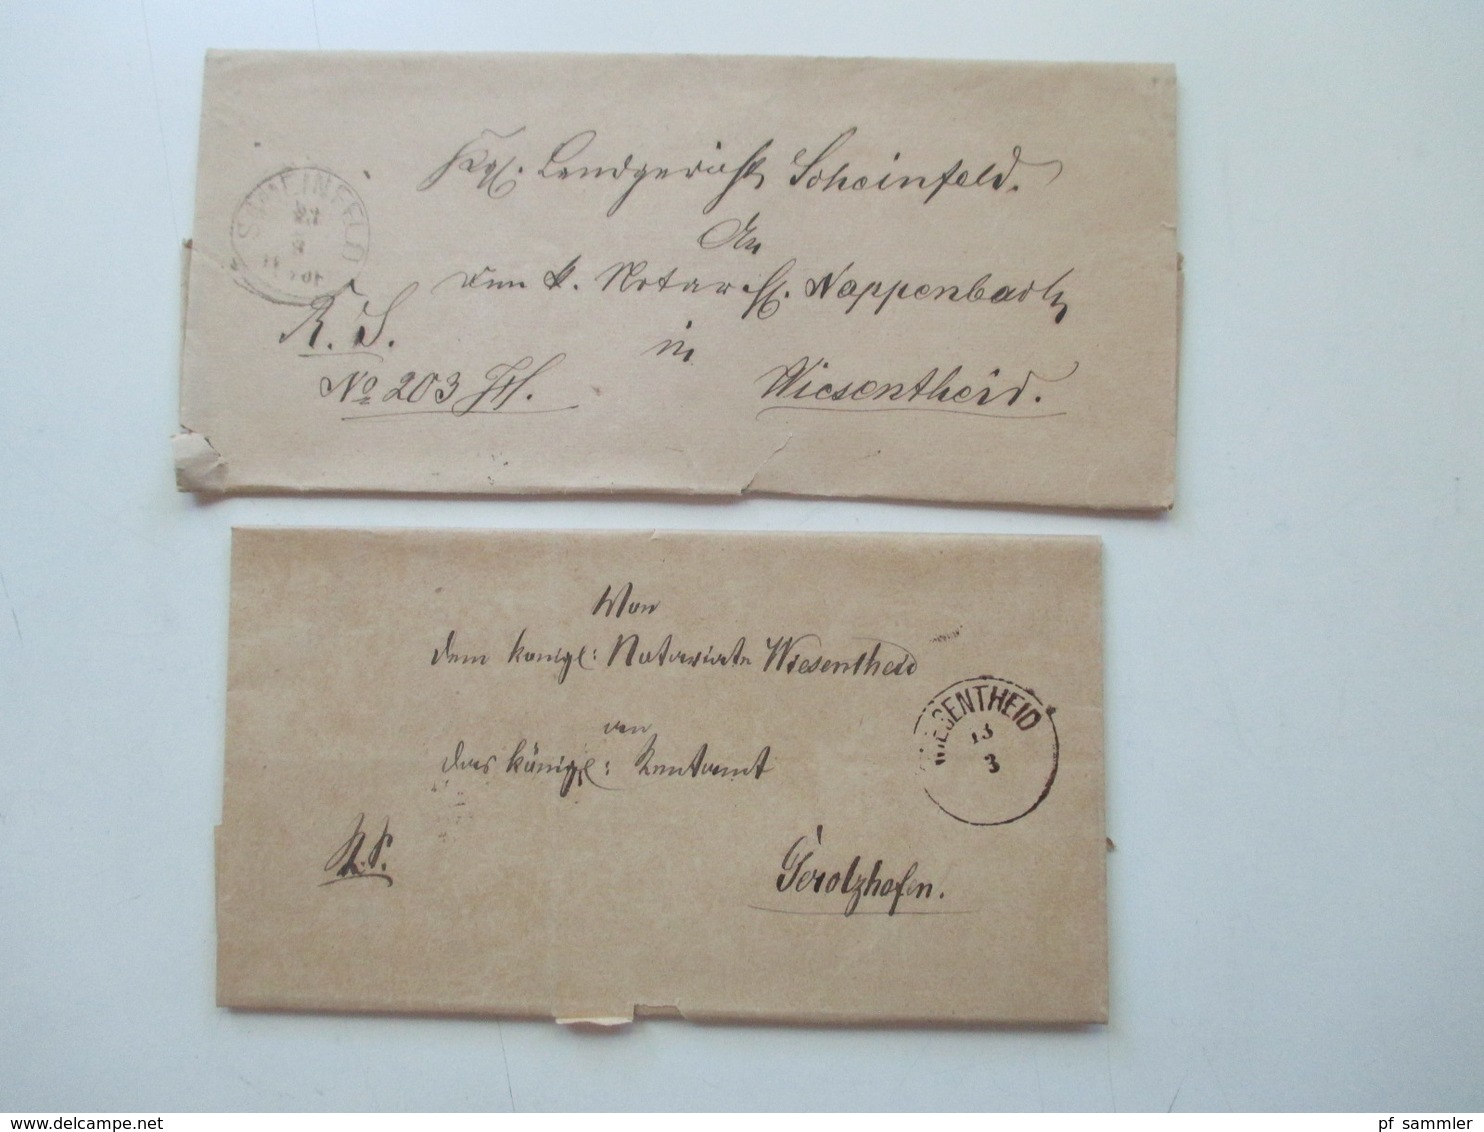 Kgl. Landgericht Scheinfeld.
An
den k. Notar H. Nappenbach
in
Wiesentheid.
R. S.
No 203
SCHEINFELD
23
Von
dem königl: Notariate Wiesentheid
an
das königl: Rentamt
Gerolzhofen.
R. S.
WIESENTHEID
13
3
www.delcampe.net
pf_sammler